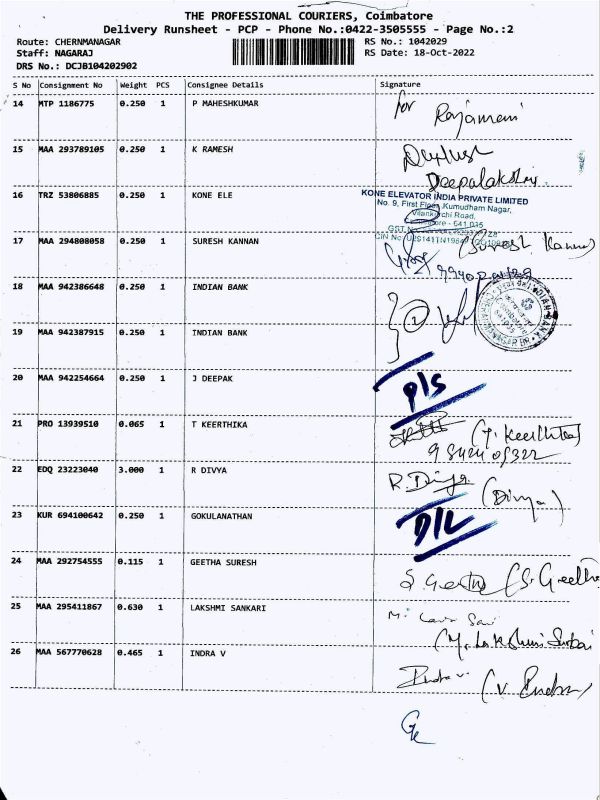 THE PROFESSIONAL COURIERS, Coimbatore
Delivery Runsheet - PCP - Phone No.:0422-3505555 - Page No.:2
Route: CHERNMANAGAR RS No.: 1042029
Staff: NAGARAJ RS Date: 18-Oct-2022
DRS No.: DCJB104202902
S No Consignment No Weight PCS Consignee Details Signature
14 MTP 1186775 0.250 1 P MAHESHKUMAR for Rajamani
15 MAA 293789105 0.250 1 K RAMESH
Deepalakshmi
16 TRZ 53806885 0.250 1 KONE ELE
KONE ELEVATOR INDIA PRIVATE LIMITED
No. 9, First Floor, Kumudham Nagar,
Vilankurchi Road,
Coimbatore - 641 035
17 MAA 294808058 0.250 1 SURESH KANNAN (Suresh Kannan)
18 MAA 942386648 0.250 1 INDIAN BANK
19 MAA 942387915 0.250 1 INDIAN BANK
20 MAA 942254664 0.250 1 J DEEPAK P/S
21 PRO 13939510 0.065 1 T KEERTHIKA (T. Keerthika)
22 EDQ 23223040 3.000 1 R DIVYA R. Divya (Divya)
23 KUR 694100642 0.250 1 GOKULANATHAN D/L
24 MAA 292754555 0.115 1 GEETHA SURESH S. Geetha (S. Geetha
25 MAA 295411867 0.630 1 LAKSHMI SANKARI
26 MAA 567770628 0.465 1 INDRA V Indra V (V Indra)